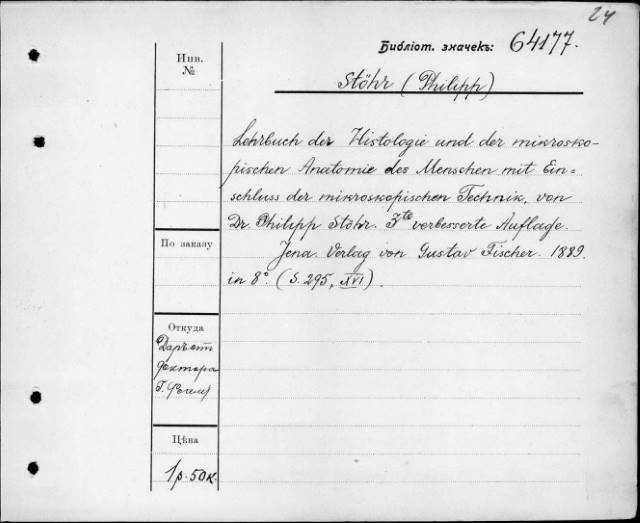 24
Библіот. значекъ: 64177.
Инв.
№
Stöhr (Philipp)
Lehrbuch der Histologie und der mikrosko-
pischen Anatomie des Menschen mit Ein=
schluss der mikroskopischen Technik, von
Dr. Philipp Stöhr. 3te verbesserte Auflage.
Jena. Verlag von Gustav Fischer. 1889.
in 8°. (S. 295, XVI).
По заказу
Откуда
Даръ отъ
доктора
Г.
Цѣна
1р. 50к.